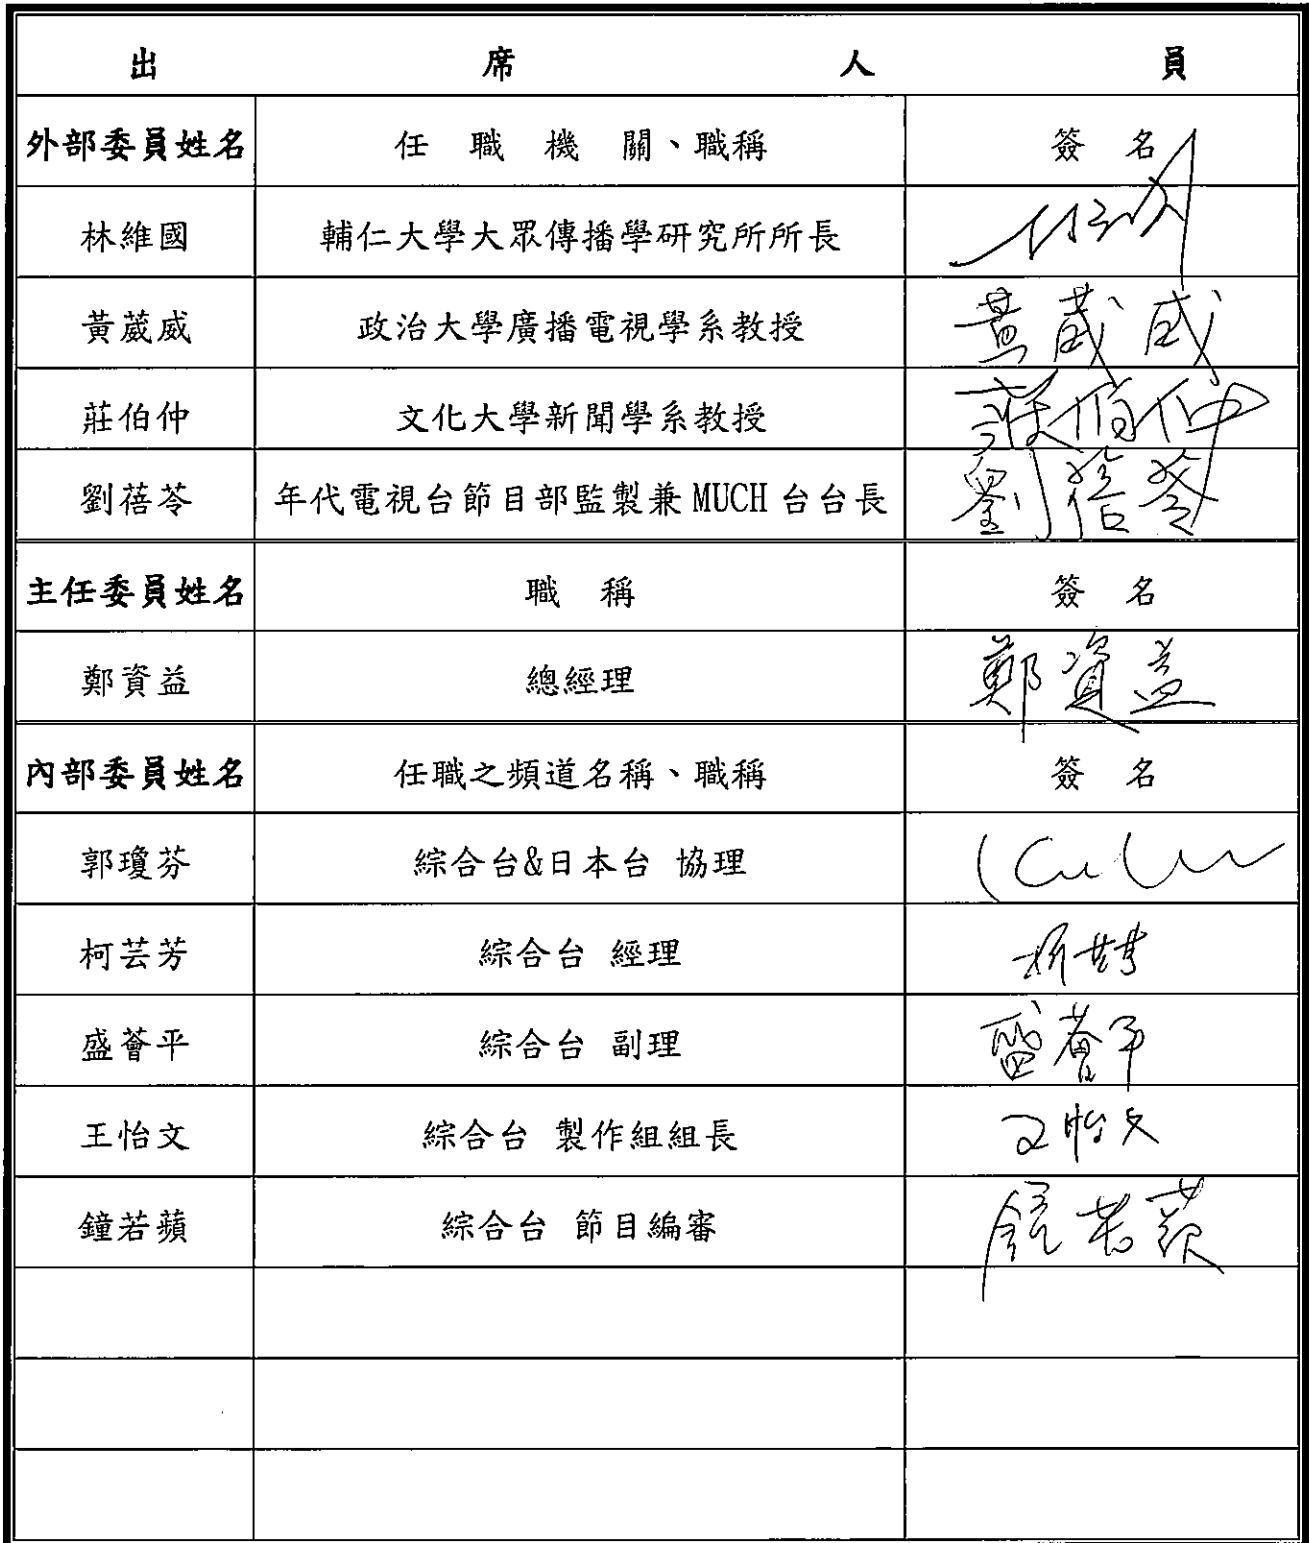 出席人員
外部委員姓名 任職機關、職稱 簽名
林維國 輔仁大學大眾傳播學研究所所長
黃葳威 政治大學廣播電視學系教授 黃葳威
莊伯仲 文化大學新聞學系教授 莊伯仲
劉蓓苓 年代電視台節目部監製兼 MUCH 台台長 劉蓓苓
主任委員姓名 職稱 簽名
鄭資益 總經理 鄭資益
內部委員姓名 任職之頻道名稱、職稱 簽名
郭瓊芬 綜合台&日本台 協理
柯芸芳 綜合台 經理
盛薈平 綜合台 副理 盛薈平
王怡文 綜合台 製作組組長 王怡文
鐘若蘋 綜合台 節目編審 鐘若蘋